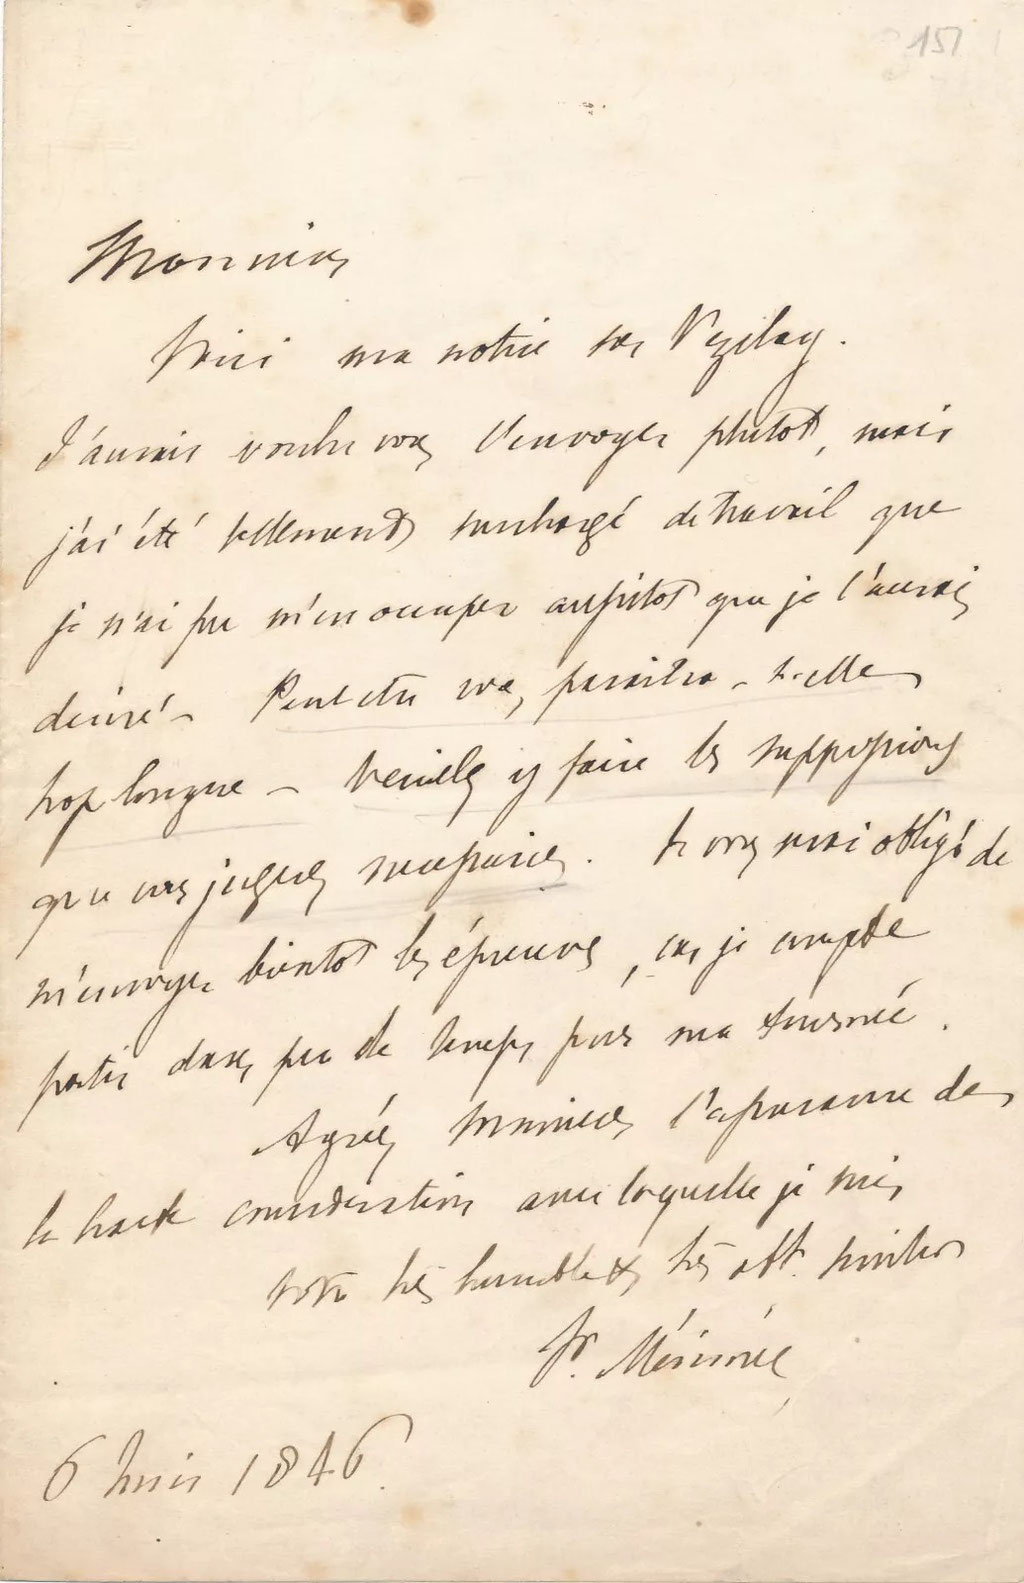 151
Monsieur,
Voici ma notice sur Vezelay.
J'aurais voulu vous l'envoyer plutot, mais
j'ai été tellement surchargé de travail que
je n'ai pu m'en occuper aussitot que je l'aurais
desiré – Peut etre vous paraitra-t-elle
trop longue – Veuillez y faire les suppressions
que vous jugerez necessaires. Je vous serai obligé de
m'envoyer bientot les épreuves, car je compte
partir dans peu de temps pour ma tournée.
Agréez Monsieur, l'assurance de
la haute consideration avec laquelle je suis
votre très humble & très obt. serviteur
Pr. Mérimée
6 Juin 1846.